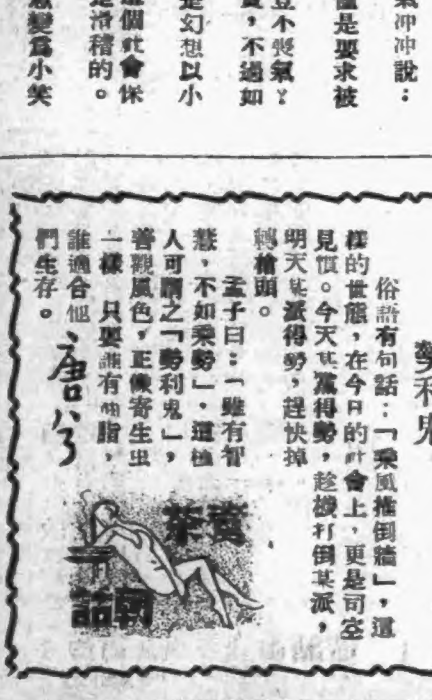 氣沖沖說：
是要求被
豈不喪氣？
，不過如
是幻想以小
個社會保
是滑稽的。
變為小笑
勢利鬼
俗語有句話：「乘風推倒牆」，這
樣的世態，在今日的社會上，更是司空
見慣。今天某黨得勢，趁機打倒某派，
明天某派得勢，趕快掉
轉槍頭。
孟子曰：「雖有智
慧，不如乘勢」，這種
人可謂之「勢利鬼」，
善觀風色，正像寄生虫
一樣，只要誰有油脂，
誰適合他
們生存。
唐兮
茶
話